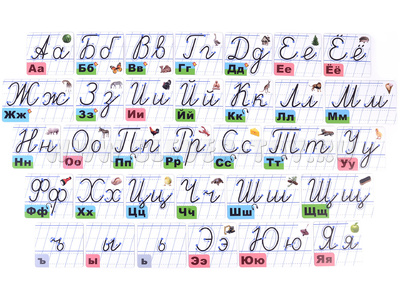 Аа Бб Вв Гг Дд Ее Ёё
Аа Бб Вв Гг Дд Ее Ёё
Жж Зз Ии Йй Кк Лл Мм
Жж Зз Ии Йй Кк Лл Мм
Нн Оо Пп Рр Сс Тт Уу
Нн Оо Пп Рр Сс Тт Уу
Фф Хх Цц Чч Шш Щщ
Фф Хх Цц Чч Шш Щщ
ъ ы ь Ээ Юю Яя
ъ ы ь Ээ Юю Яя